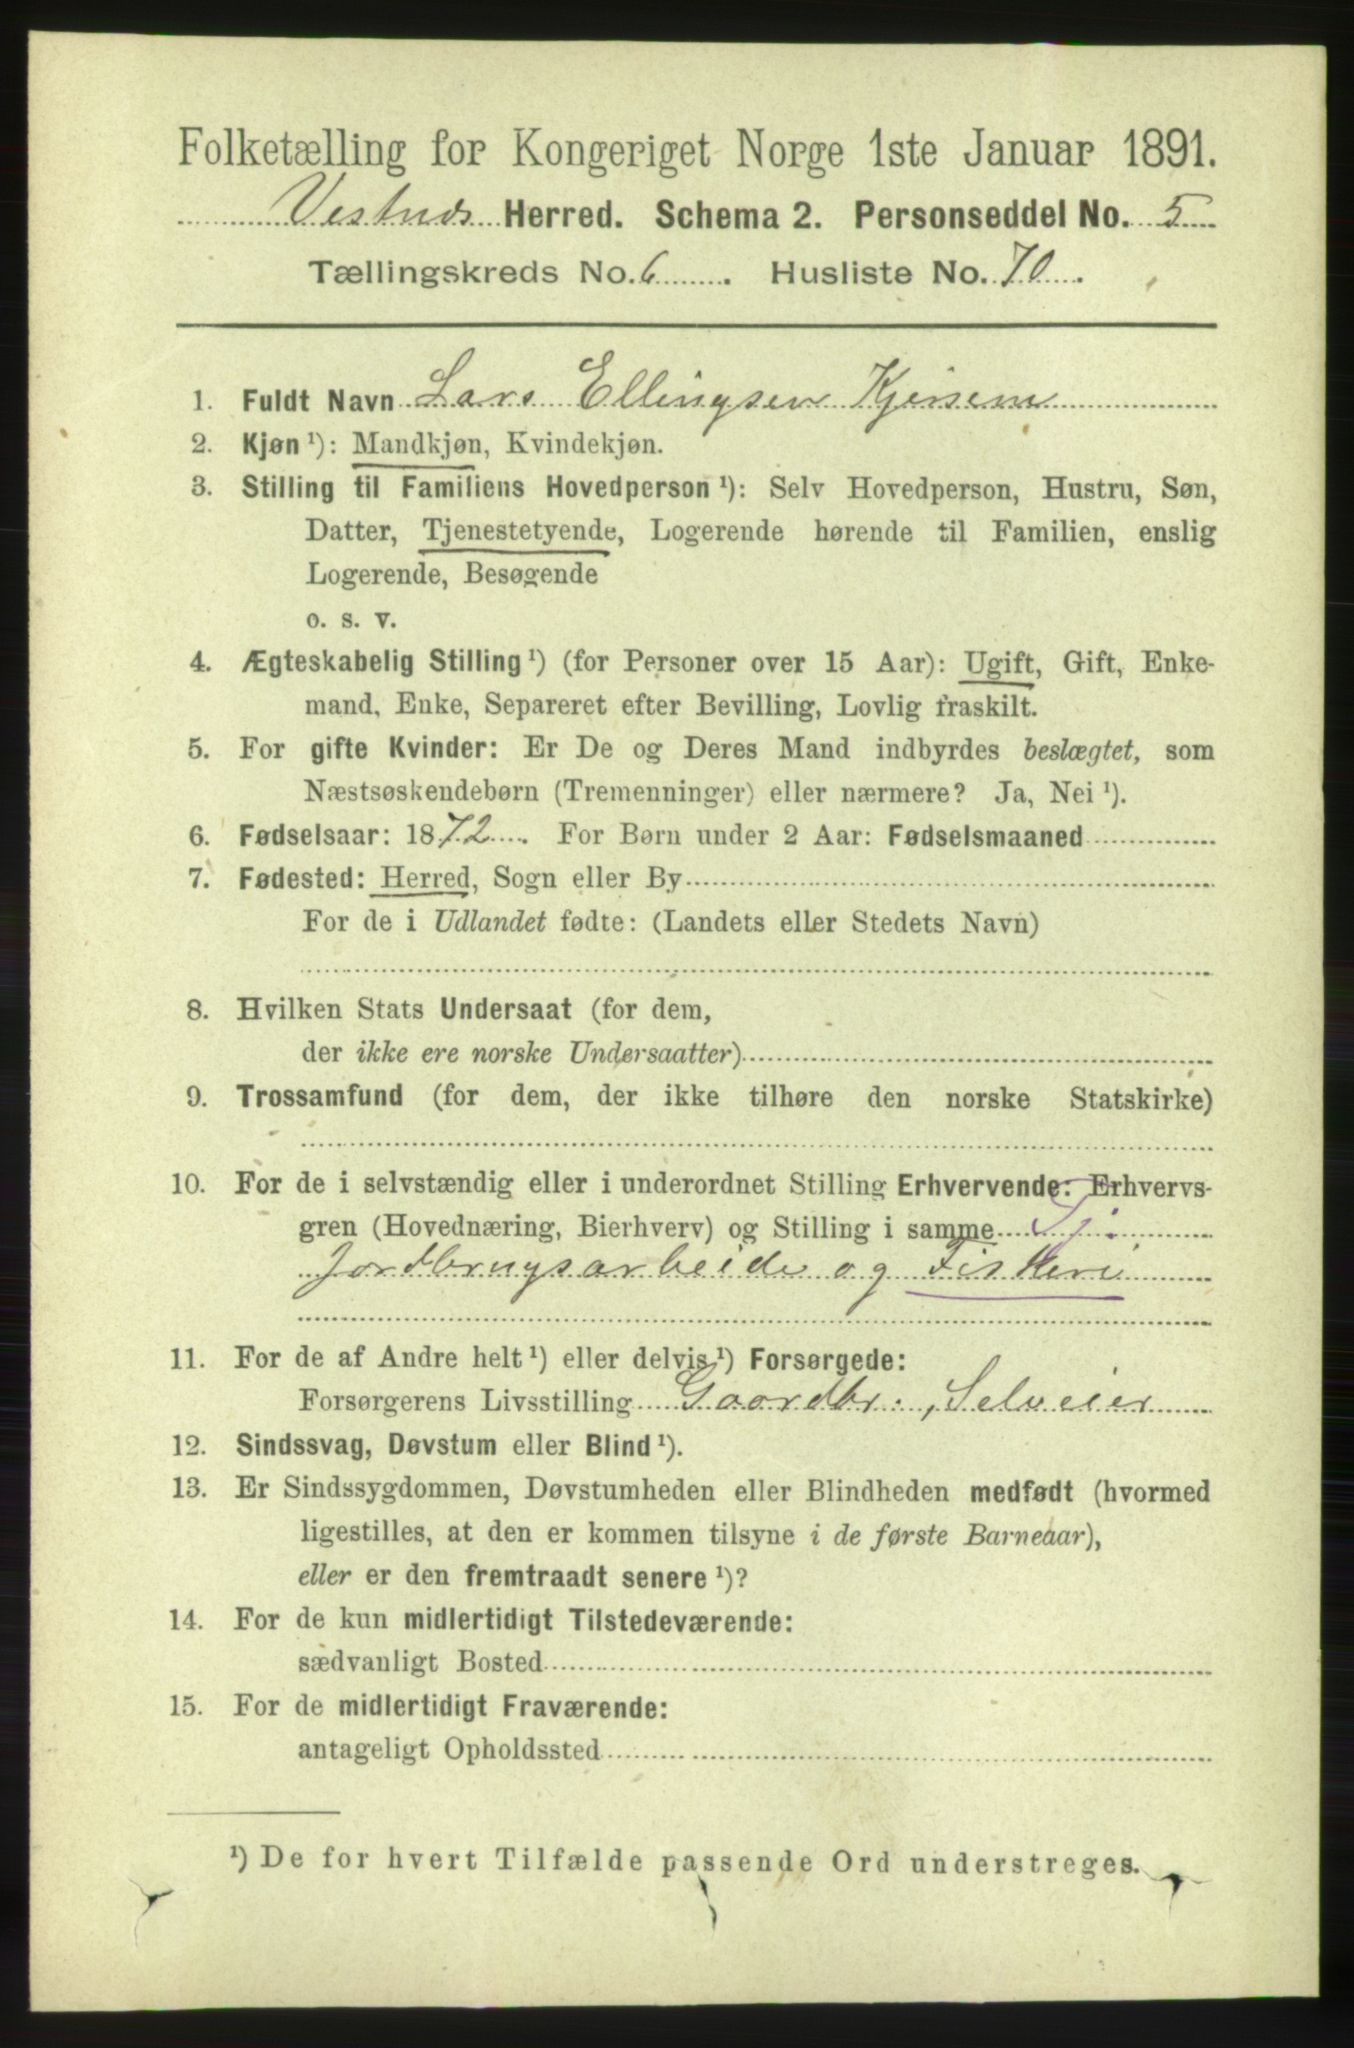 Folketælling for Kongeriget Norge 1ste Januar 1891.
Vestnes Herred. Schema 2. Personseddel No. 5
Tællingskreds No. 6. Husliste No. 70.
1. Fuldt Navn Lars Ellingsen Kjersem
2. Kjøn ¹): Mandkjøn, Kvindekjøn.
3. Stilling til Familiens Hovedperson ¹): Selv Hovedperson, Hustru, Søn,
Datter, Tjenestetyende, Logerende hørende til Familien, enslig
Logerende, Besøgende
o. s. v.
4. Ægteskabelig Stilling ¹) (for Personer over 15 Aar): Ugift, Gift, Enke-
mand, Enke, Separeret efter Bevilling, Lovlig fraskilt.
5. For gifte Kvinder: Er De og Deres Mand indbyrdes beslægtet, som
Næstsøskendebørn (Tremenninger) eller nærmere? Ja, Nei ¹).
6. Fødselsaar: 1872. For Børn under 2 Aar: Fødselsmaaned
7. Fødested: Herred, Sogn eller By
For de i Udlandet fødte: (Landets eller Stedets Navn)
8. Hvilken Stats Undersaat (for dem,
der ikke ere norske Undersaatter)
9. Trossamfund (for dem, der ikke tilhøre den norske Statskirke)
10. For de i selvstændig eller i underordnet Stilling Erhvervende: Erhvervs-
gren (Hovednæring, Bierhverv) og Stilling i samme Tj.
Jordbrugsarbeide og Fiskeri
11. For de af Andre helt ¹) eller delvis ¹) Forsørgede:
Forsørgerens Livsstilling Gaardbr., Selveier
12. Sindssvag, Døvstum eller Blind ¹).
13. Er Sindssygdommen, Døvstumheden eller Blindheden medfødt (hvormed
ligestilles, at den er kommen tilsyne i de første Barneaar),
eller er den fremtraadt senere ¹)?
14. For de kun midlertidigt Tilstedeværende:
sædvanligt Bosted
15. For de midlertidigt Fraværende:
antageligt Opholdssted
¹) De for hvert Tilfælde passende Ord understreges.